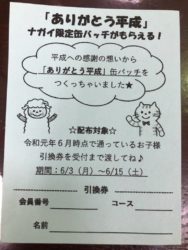 「ありがとう平成」
ナガイ限定缶バッチがもらえる！
平成への感謝の想いから
「ありがとう平成」缶バッチを
つくっちゃいました★
☆配布対象☆
令和元年６月時点で通っているお子様
引換券を受付まで渡してね♪
期間：6/3（月）～6/15（土）
引換券
会員番号　コース
名前